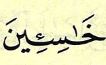 خَٰسِئِينَ